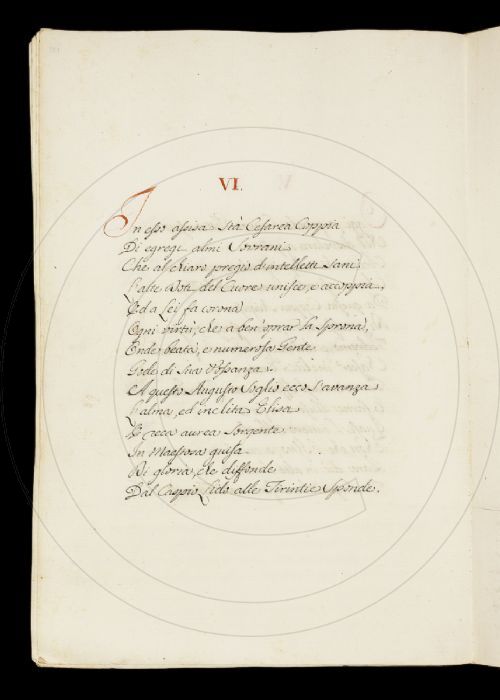 VI.
In esso assisa stà Cesarea Coppia
Di egregi almi Sovrani
Che al chiaro pregio d'intelletti sani
L'alte Doti del Cuore unisce, e accoppia,
Ed a Lei fa corona
Ogni virtù, che a ben oprar la sprona,
Onde beata, e numerosa Gente
Gode di Sua Possanza.
A questo Augusto Soglio ecco s'avanza
L'alma, ed inclita Elisa
E reca aurea Sorgente
In Maestosa guisa
Di gloria, che diffonde
Dal Caspio Lido alle Tirintie Sponde.